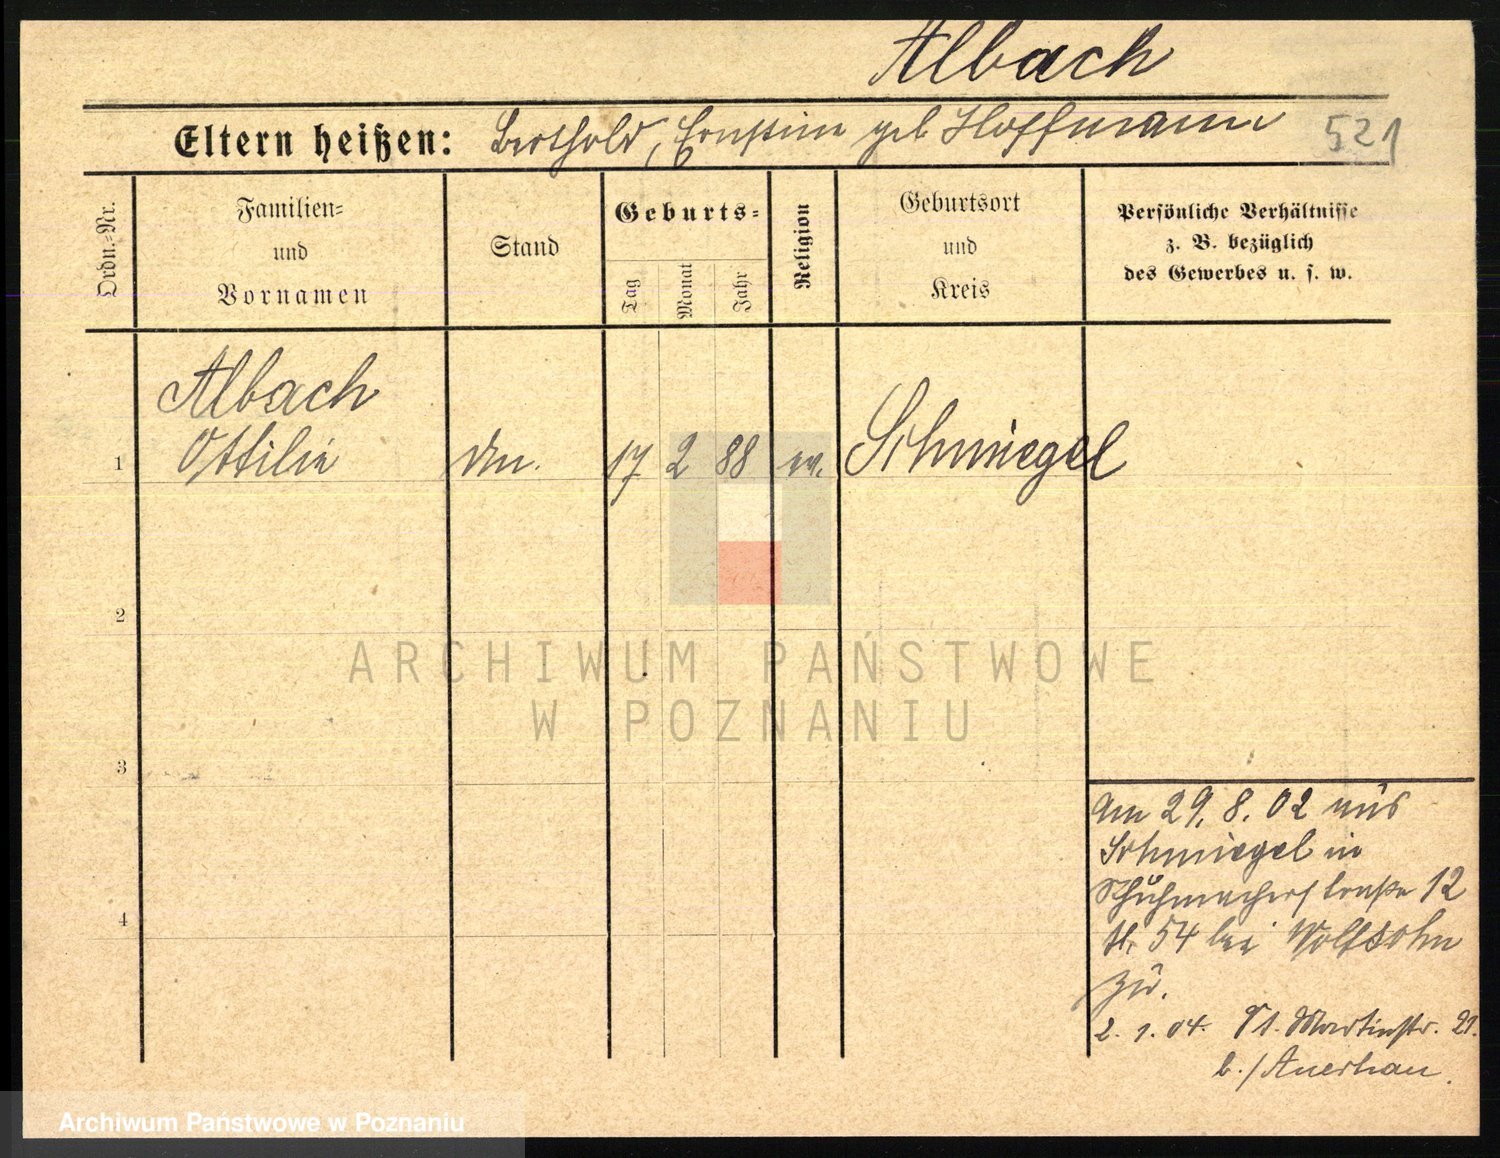 Albach
Eltern heißen: Berthold, Ernstine geb Hoffmann 521
Ordn.-Nr.
Familien-
und
Vornamen
Stand
Geburts-
Tag
Monat
Jahr
Religion
Geburtsort
und
Kreis
Persönliche Verhältnisse
z. B. bezüglich
des Gewerbes u. s. w.
Albach
1 Ottilie 17 2 88 ev. Schmiegel
2
3
4
Am 29. 8. 02 aus
Schmiegel in
Schuhmacherstraße 12
54 bei Wolfsohn
zu.
2. 1. 04. St. Martinstr. 21.
b./Auerhan.
ARCHIWUM PAŃSTWOWE
W POZNANIU
Archiwum Państwowe w Poznaniu